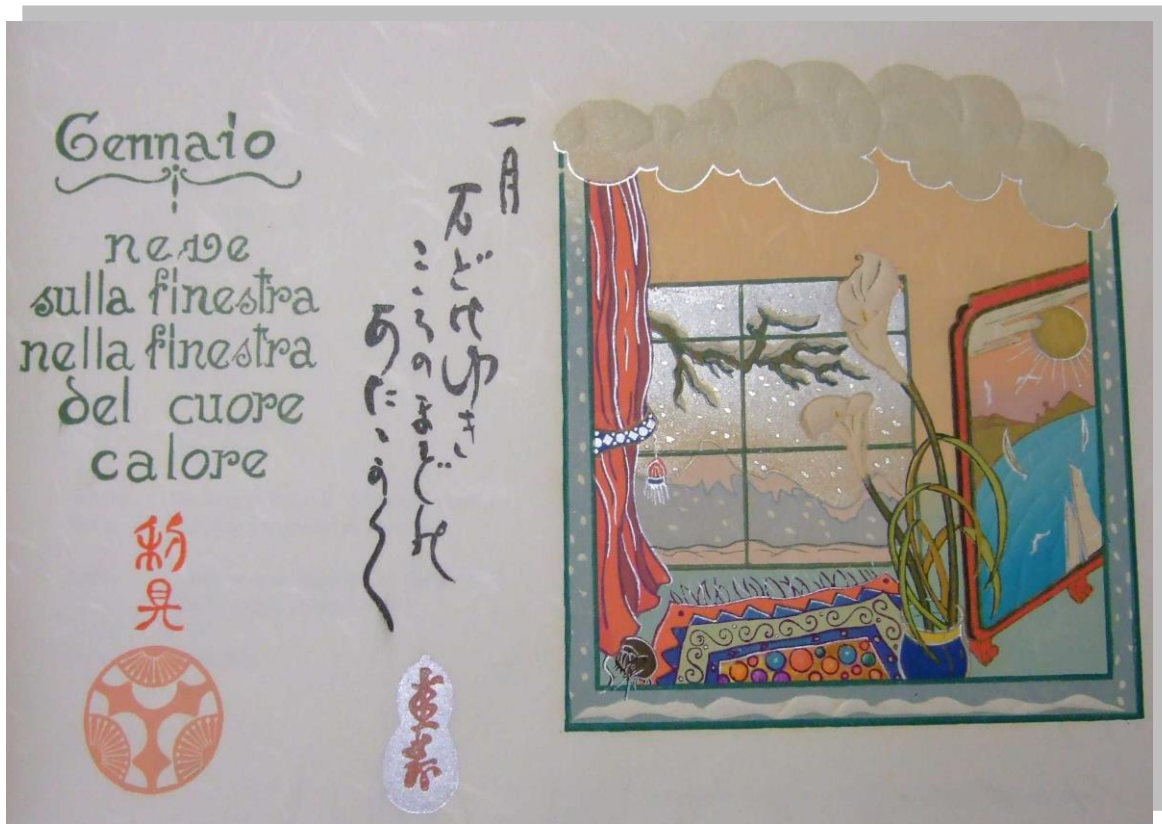 Gennaio
neve
sulla finestra
nella finestra
del cuore
calore
一月
まどのゆき
こころのまどの